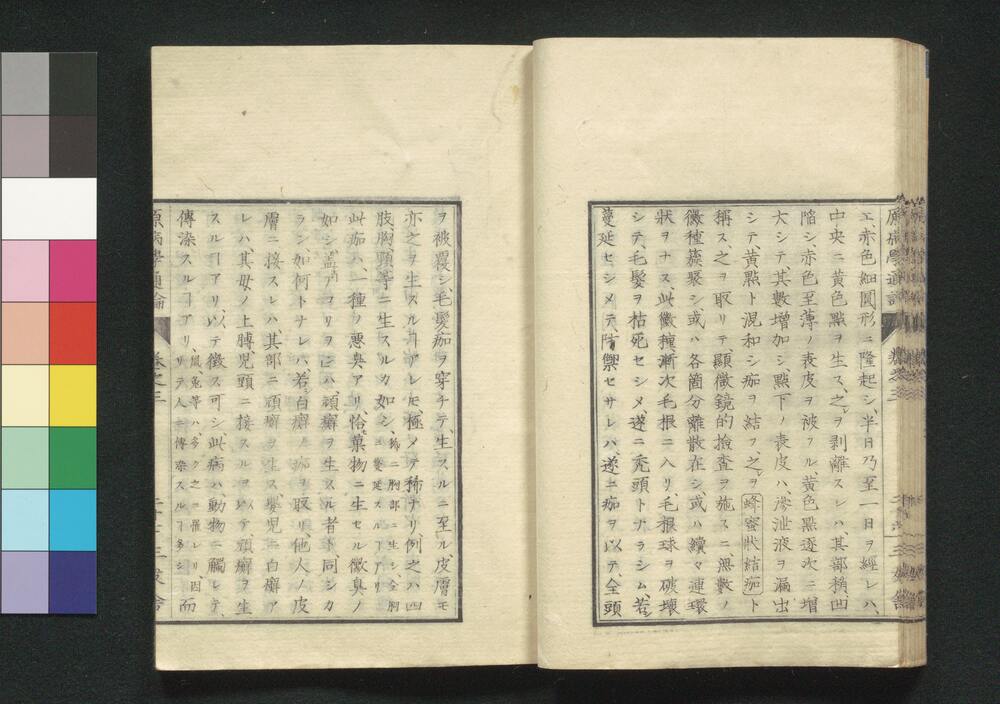 エ、赤色細圓形ニ隆起シ、半日乃至一日ヲ經レハ、
中央ニ黄色點ヲ生ス、之レヲ剥離スレハ其部稍凹
陥シ、赤色至薄ノ表皮ヲ被フル、黄色點逐次ニ増
大シテ其數増加シ、點下ノ表皮ハ、滲泄液ヲ漏出
シテ、黄點ト混和シ痂ヲ結フ、之レヲ蜂蜜狀結痂ト
稱ス、之ヲ取リテ、顯微鏡的檢査ヲ施スニ、無數ノ
黴種蔟聚シ、或ハ各箇分離散在シ、或ハ纘々連環
狀ヲナス、此黴種漸次毛根ニ入リ、毛根球ヲ破壊
シテ、毛髪ヲ枯死セシメ、遂ニ禿頭トナラシム、若シ
蔓延セシメテ、防禦セサレハ、遂ニ痂ヲ以テ、全頭
ヲ被覆シ、毛髪痂ヲ穿チテ、生スルニ至ル、皮膚モ
亦之ヲ生スルヿアレ𪜈、極メテ稀ナリ、例之ハ四
肢、胸、頸等ニ生スルカ如シ、稀ニ胸部ニ生シ、全胸ニ蔓延スルヿアリ
此痂ハ、一種ノ悪臭アリ、恰モ菓物ニ生セル黴臭ノ
如シ、蓋シアコリヲンハ、頑癬ヲ生スル者ト同シカ
ラン如何トナレハ、若シ白癬ノ痂ヲ取リ、他人ノ皮
膚ニ接スレハ、其部ニ頑癬ヲ生ス、嬰児ニ白癬ア
レハ、其母ノ上膊、児頸ニ接スルヲ以テ、頑癬ヲ生
スルヿアリ、以テ徴ス可シ此病ハ動物ニ觸レテ、
傳染スルヿアリ、鼠兎等ハ、多ク之ニ罹リ、因リテ人ニ傳染スルヿ多シ而
原病學通論
卷之三